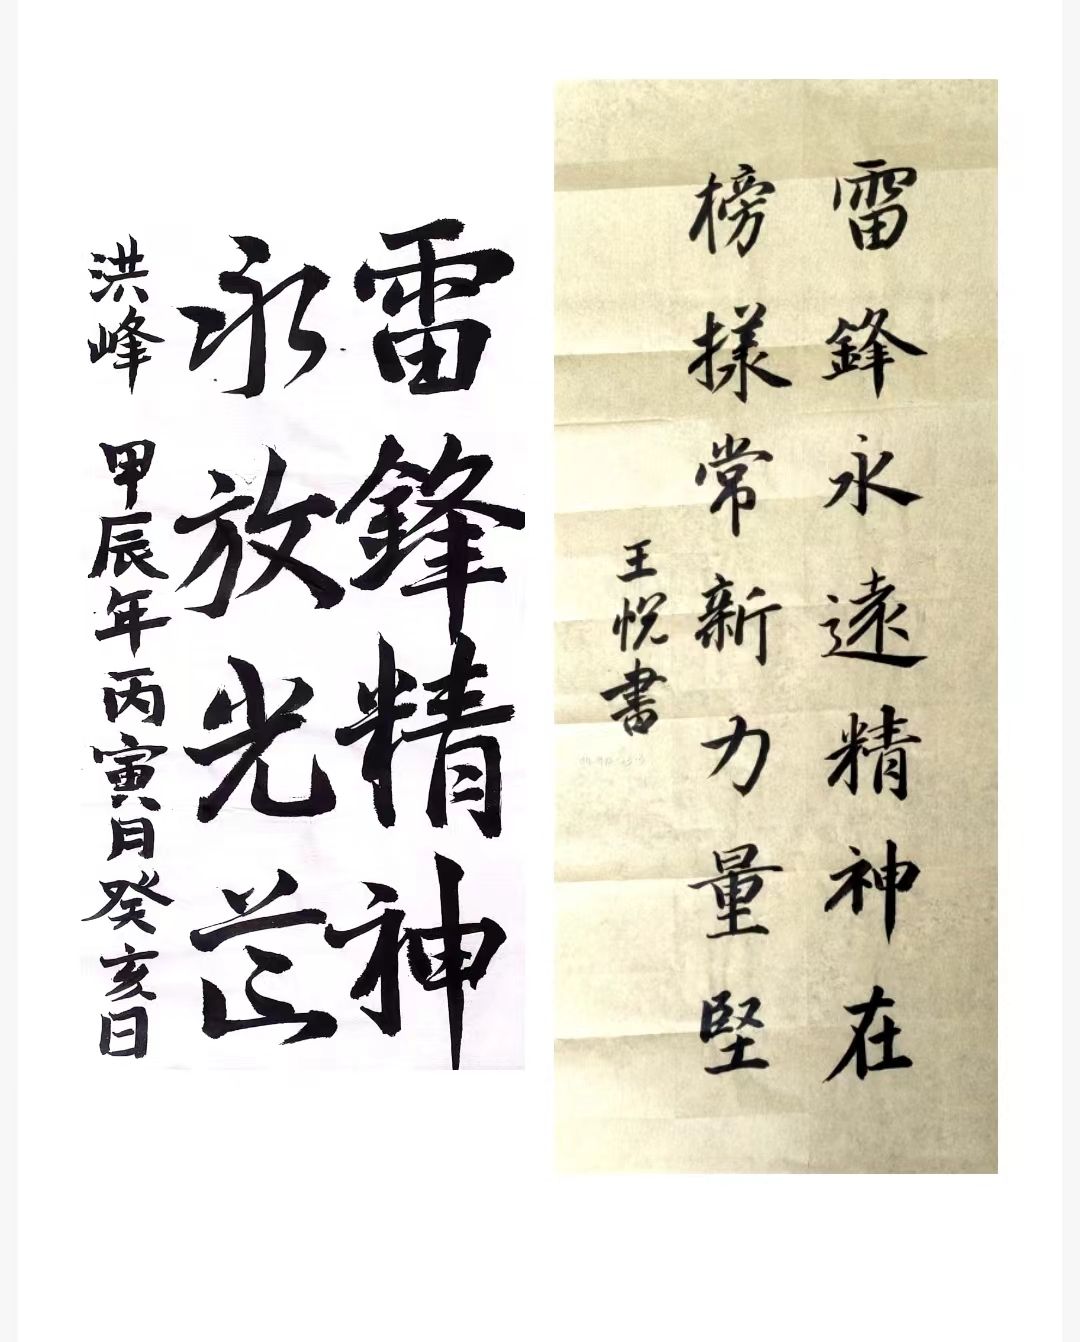 雷鋒精神
永放光芒
洪峰 甲辰年丙寅月癸亥日
雷鋒永遠精神在
榜樣常新力量堅
王悅書